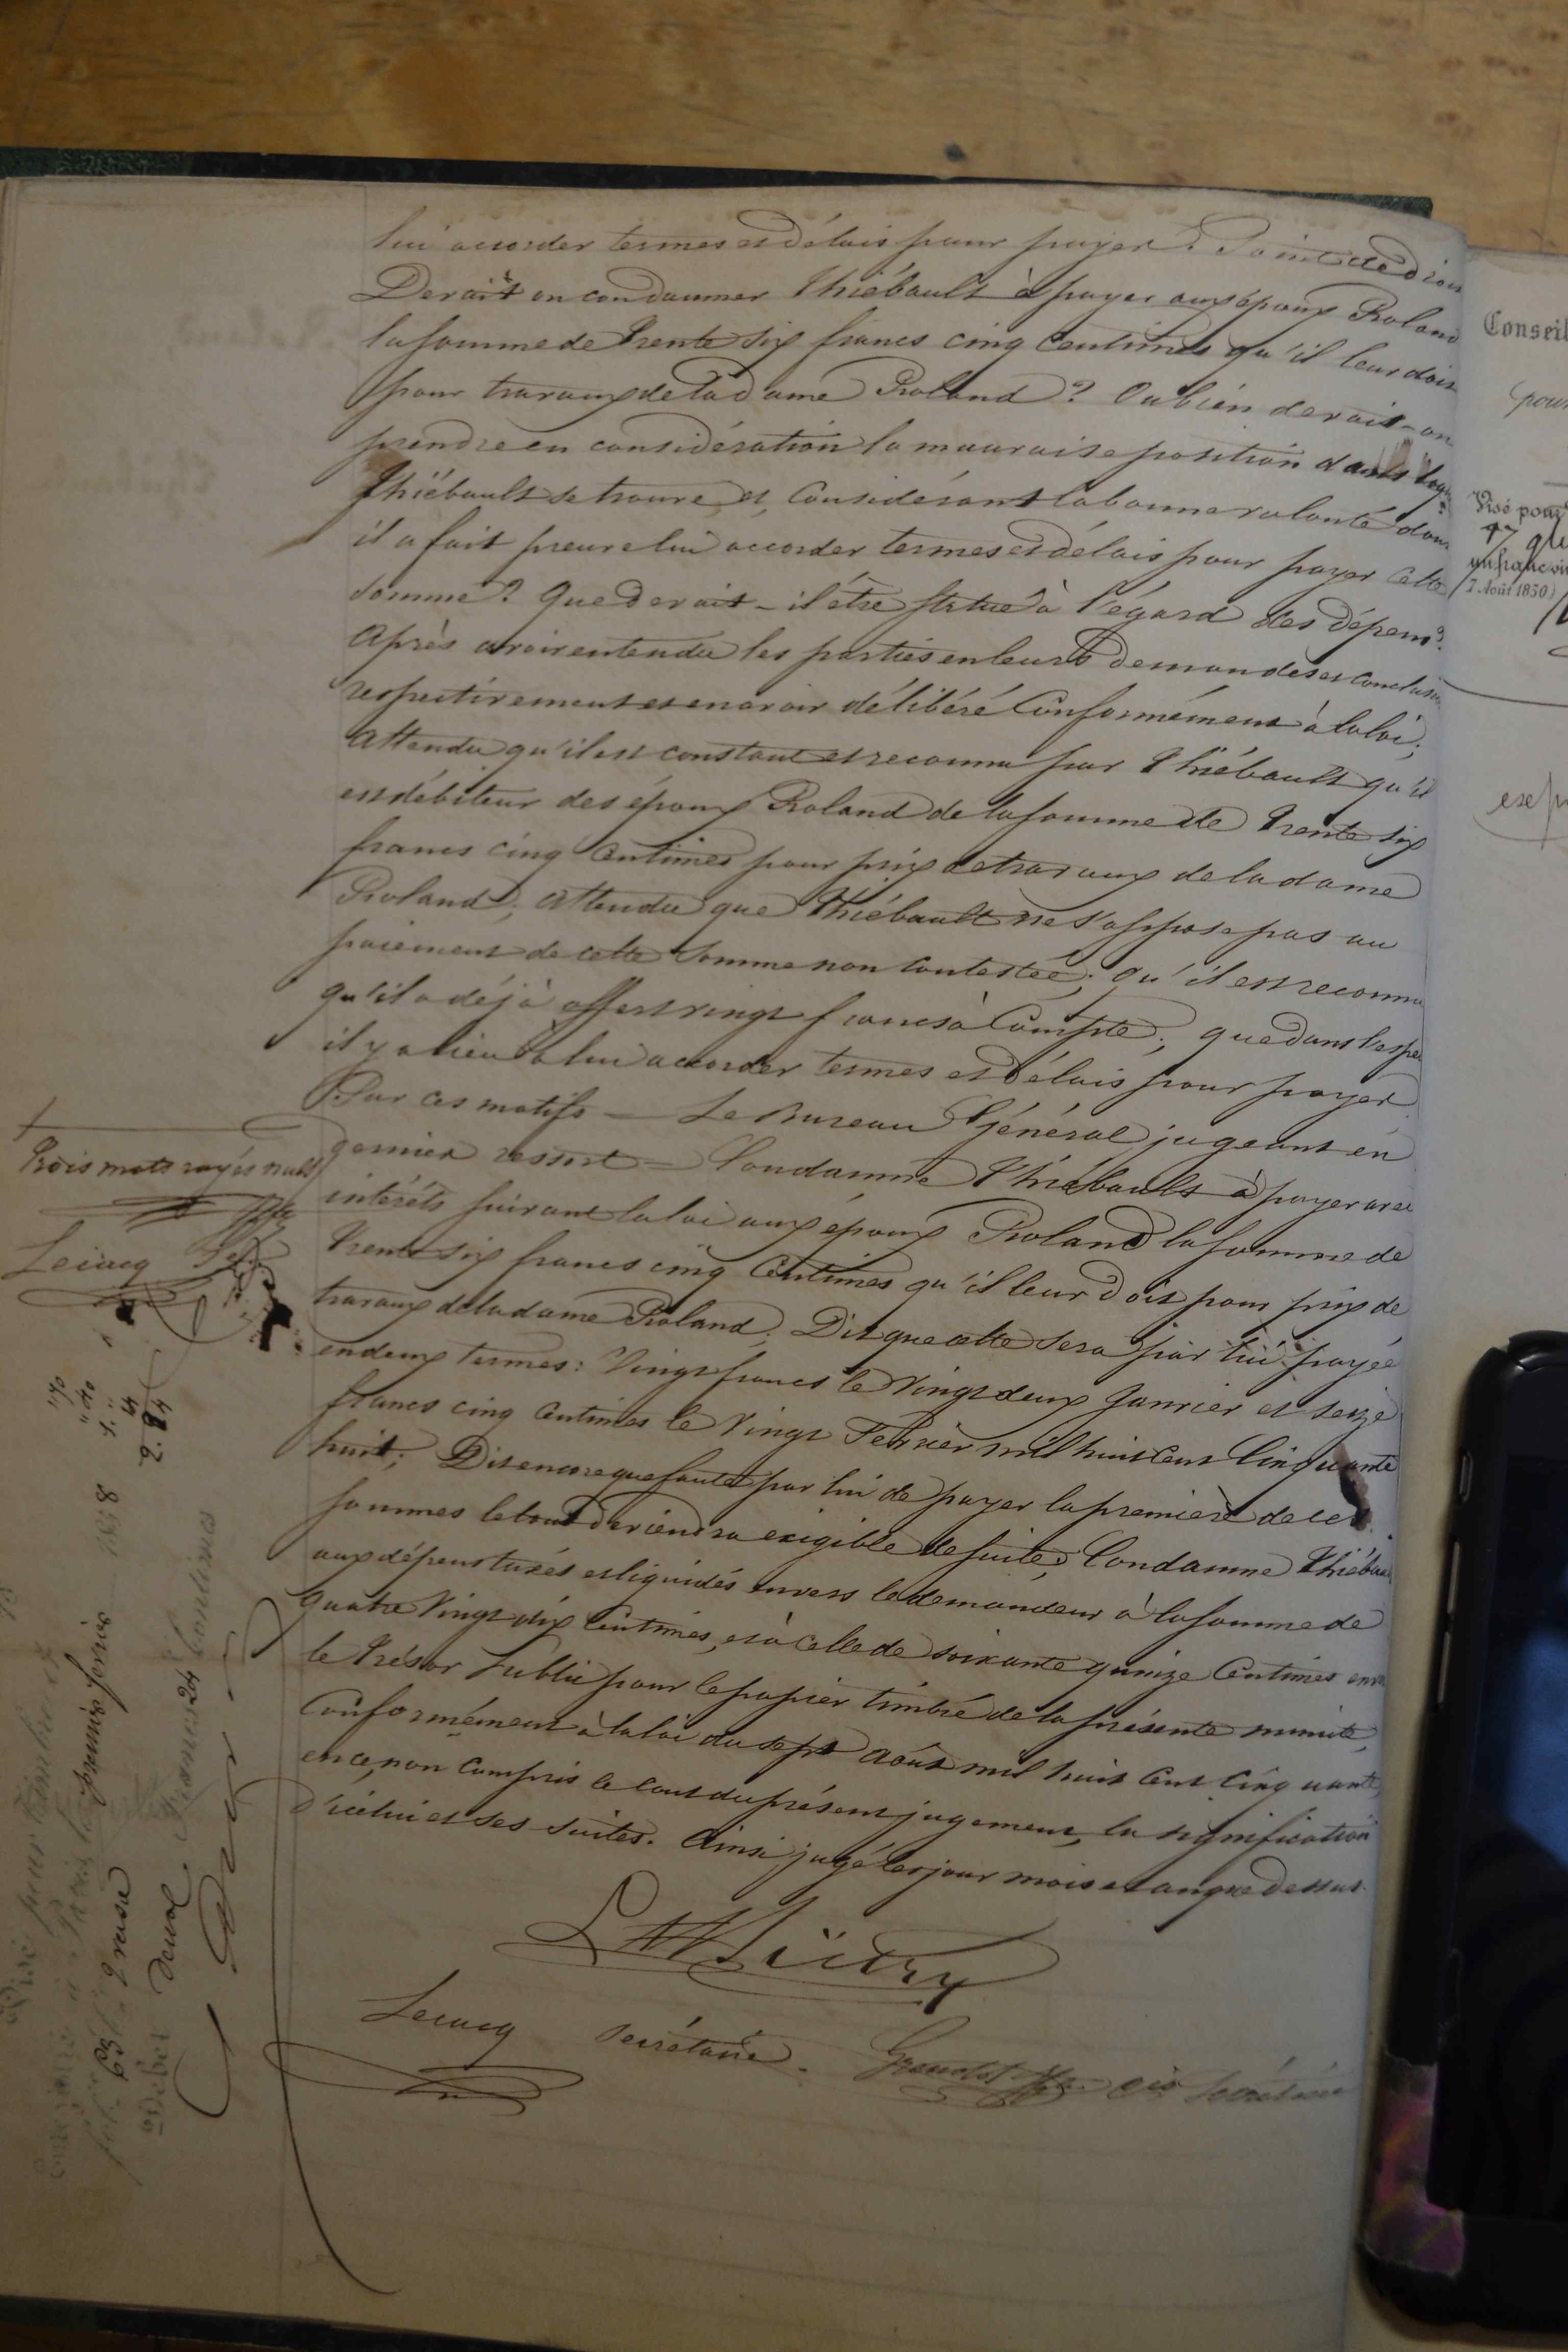 lui accorder termes et délais pour payer? Point de droit
Devait on condamner Thiébault à payer aux époux Roland
la somme de Trente six francs cinq centimes qu'il leur doit
pour travaux de la dame Roland? Ou bien devait-on
prendre en considération la mauvaise position dans laqu
Thiébault se trouve et, Considérant la bonne volonté dont
il a fait preuve lui accorder termes et délais pour payer cette
somme? Que devait-il être statué à l'égard des dépens?
Après avoir entendu les parties en leurs demandes et conclusions
respectivement et en avoir délibéré Conformément à la loi;
Attendu qu'il est constant et reconnu par Thiébault qu'il
est débiteur des époux Roland de la somme de Trente six
francs cinq centimes pour prix de travaux de la dame
Roland; Attendu que Thiébault ne s'oppose pas au
paiement de cette somme non contestée; qu'il est reconnu
qu'il a déjà offert vingt francs à Compte; que dans l'espèce
il y a lieu à lui accorder termes et délais pour payer.
Par ces motifs — Le Bureau Général jugeant en
dernier ressort — Condamne Thiébault à payer avec
intérêts suivant la loi aux époux Roland la somme de
Trente six francs cinq Centimes qu'il leur doit pour prix de
travaux de la dame Roland; Dit que cette sera par lui payée
en deux termes: Vingt francs le Vingt deux Janvier et seize
francs cinq centimes le Vingt Février mil huit cent Cinquante
huit; Dit encore que faute par lui de payer la première de ces
sommes le tout deviendra exigible de suite; Condamne Thiébault
aux dépens taxés et liquidés envers le demandeur à la somme de
quatre Vingt dix Centimes, et à celle de soixante quinze Centimes envers
le Trésor Public pour le papier timbré de la présente minute,
Conformément à la loi du sept Août mil huit Cent Cinquante,
en ce, non compris le cout du présent jugement, la signification
d'icelui et ses suites. Ainsi jugé les jour mois et an que dessus.
Lecucq secrétaire.
Trois mots rayés nuls
Lecucq
2. 84
Conseil
pour
Visé pour
un franc vin
7 Août 1850)